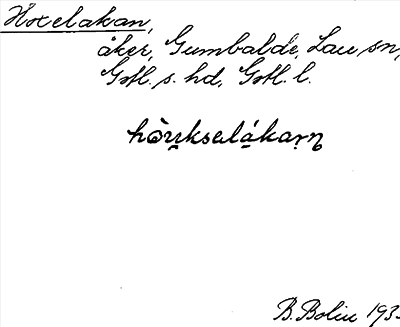 Hxelakan,
åker, Gumbalde, Lau sn,
Gotl. s. hd, Gotl. l.
hòu̯ksalákaṛn
B. Bolin 193